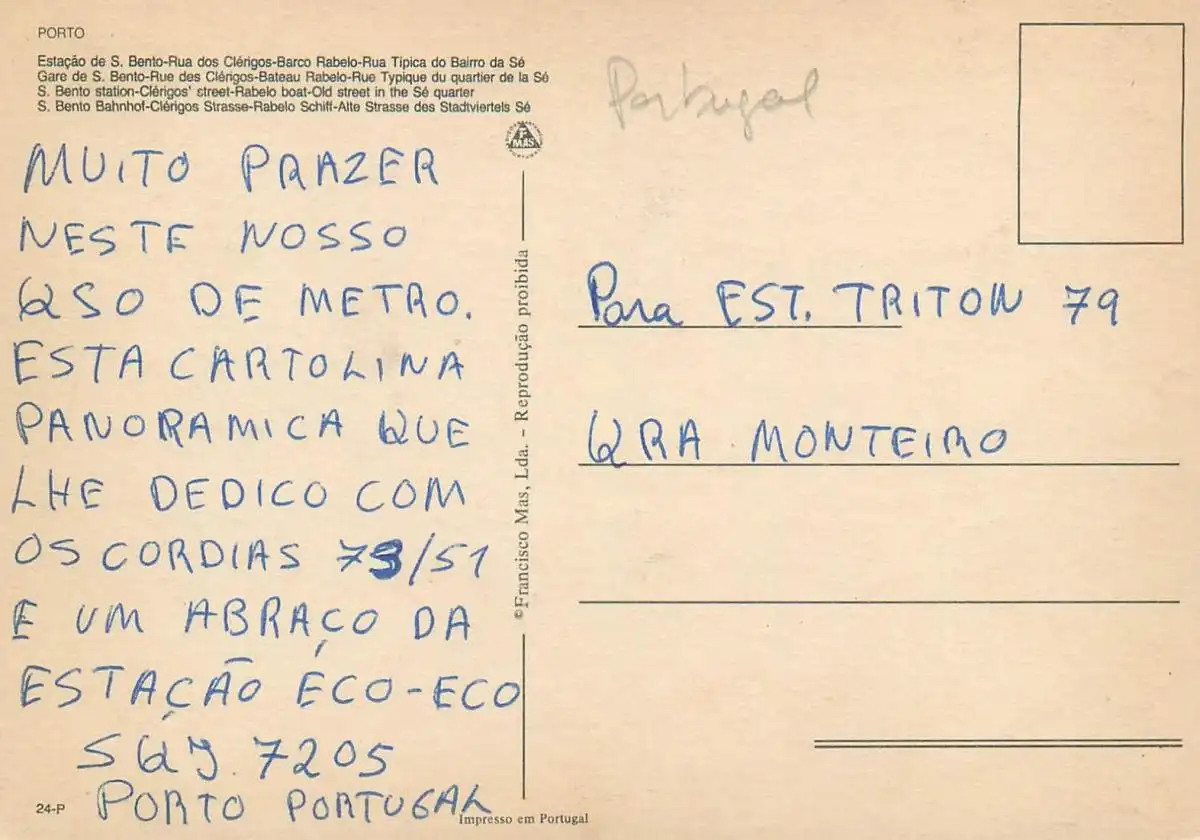 PORTO
Estação de S. Bento-Rua dos Clérigos-Barco Rabelo-Rua Típica do Bairro da Sé
Gare de S. Bento-Rue des Clérigos-Bateau Rabelo-Rue Typique du quartier de la Sé
S. Bento station-Clérigos' street-Rabelo boat-Old street in the Sé quarter
S. Bento Bahnhof-Clérigos Strasse-Rabelo Schiff-Alte Strasse des Stadtviertels Sé
MUITO PRAZER
NESTE NOSSO
QSO DE METRO.
ESTA CARTOLINA
PANORAMICA QUE
LHE DEDICO COM
OS CORDIAS 73/51
E UM ABRAÇO DA
ESTAÇÃO ECO-ECO
SQJ. 7205
PORTO PORTUGAL
24-P
F
MAS
©Francisco Mas, Lda. - Reprodução proibida
Impresso em Portugal
Portugal
Para EST. TRITON 79
QRA MONTEIRO